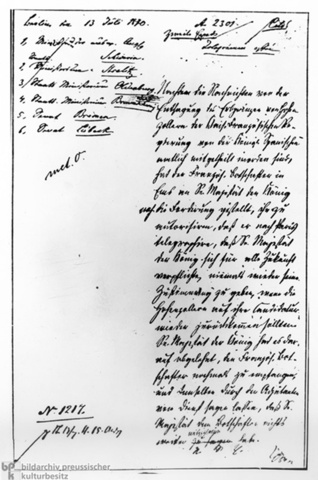 Berlin den 13 Juli 1870.
A. 2301.
Telegramm
1.
2. Ministerium Strelitz
3. Staats Ministerium Oldenburg
4. Staats Ministerium
5. Senat Bremen
6. Senat Lübeck
Nachdem die Nachrichten von der
Entsagung des Erbprinzen von Hohen-
zollern der Kais. Französischen Re-
gierung von der Königl. Spanischen
amtlich mitgetheilt worden sind,
hat der Französ. Botschafter in
Ems an Se. Majestät den König
noch die Forderung gestellt, ihn zu
autorisiren, daß er nach Paris
telegraphire, daß Se. Majestät
der König sich für alle Zukunft
verpflichte, niemals wieder seine
Zustimmung zu geben, wenn die
Hohenzollern auf ihre Candidatur
wieder zurückkommen sollten.
Se. Majestät der König hat es dar-
auf abgelehnt, den Französ. Bot-
schafter nochmals zu empfangen,
und demselben durch den Adjutanten
vom Dienst sagen lassen, daß Se.
Majestät dem Botschafter nichts
weiter mitzutheilen habe.
N° 1217.
bpk bildarchiv preussischer
kulturbesitz